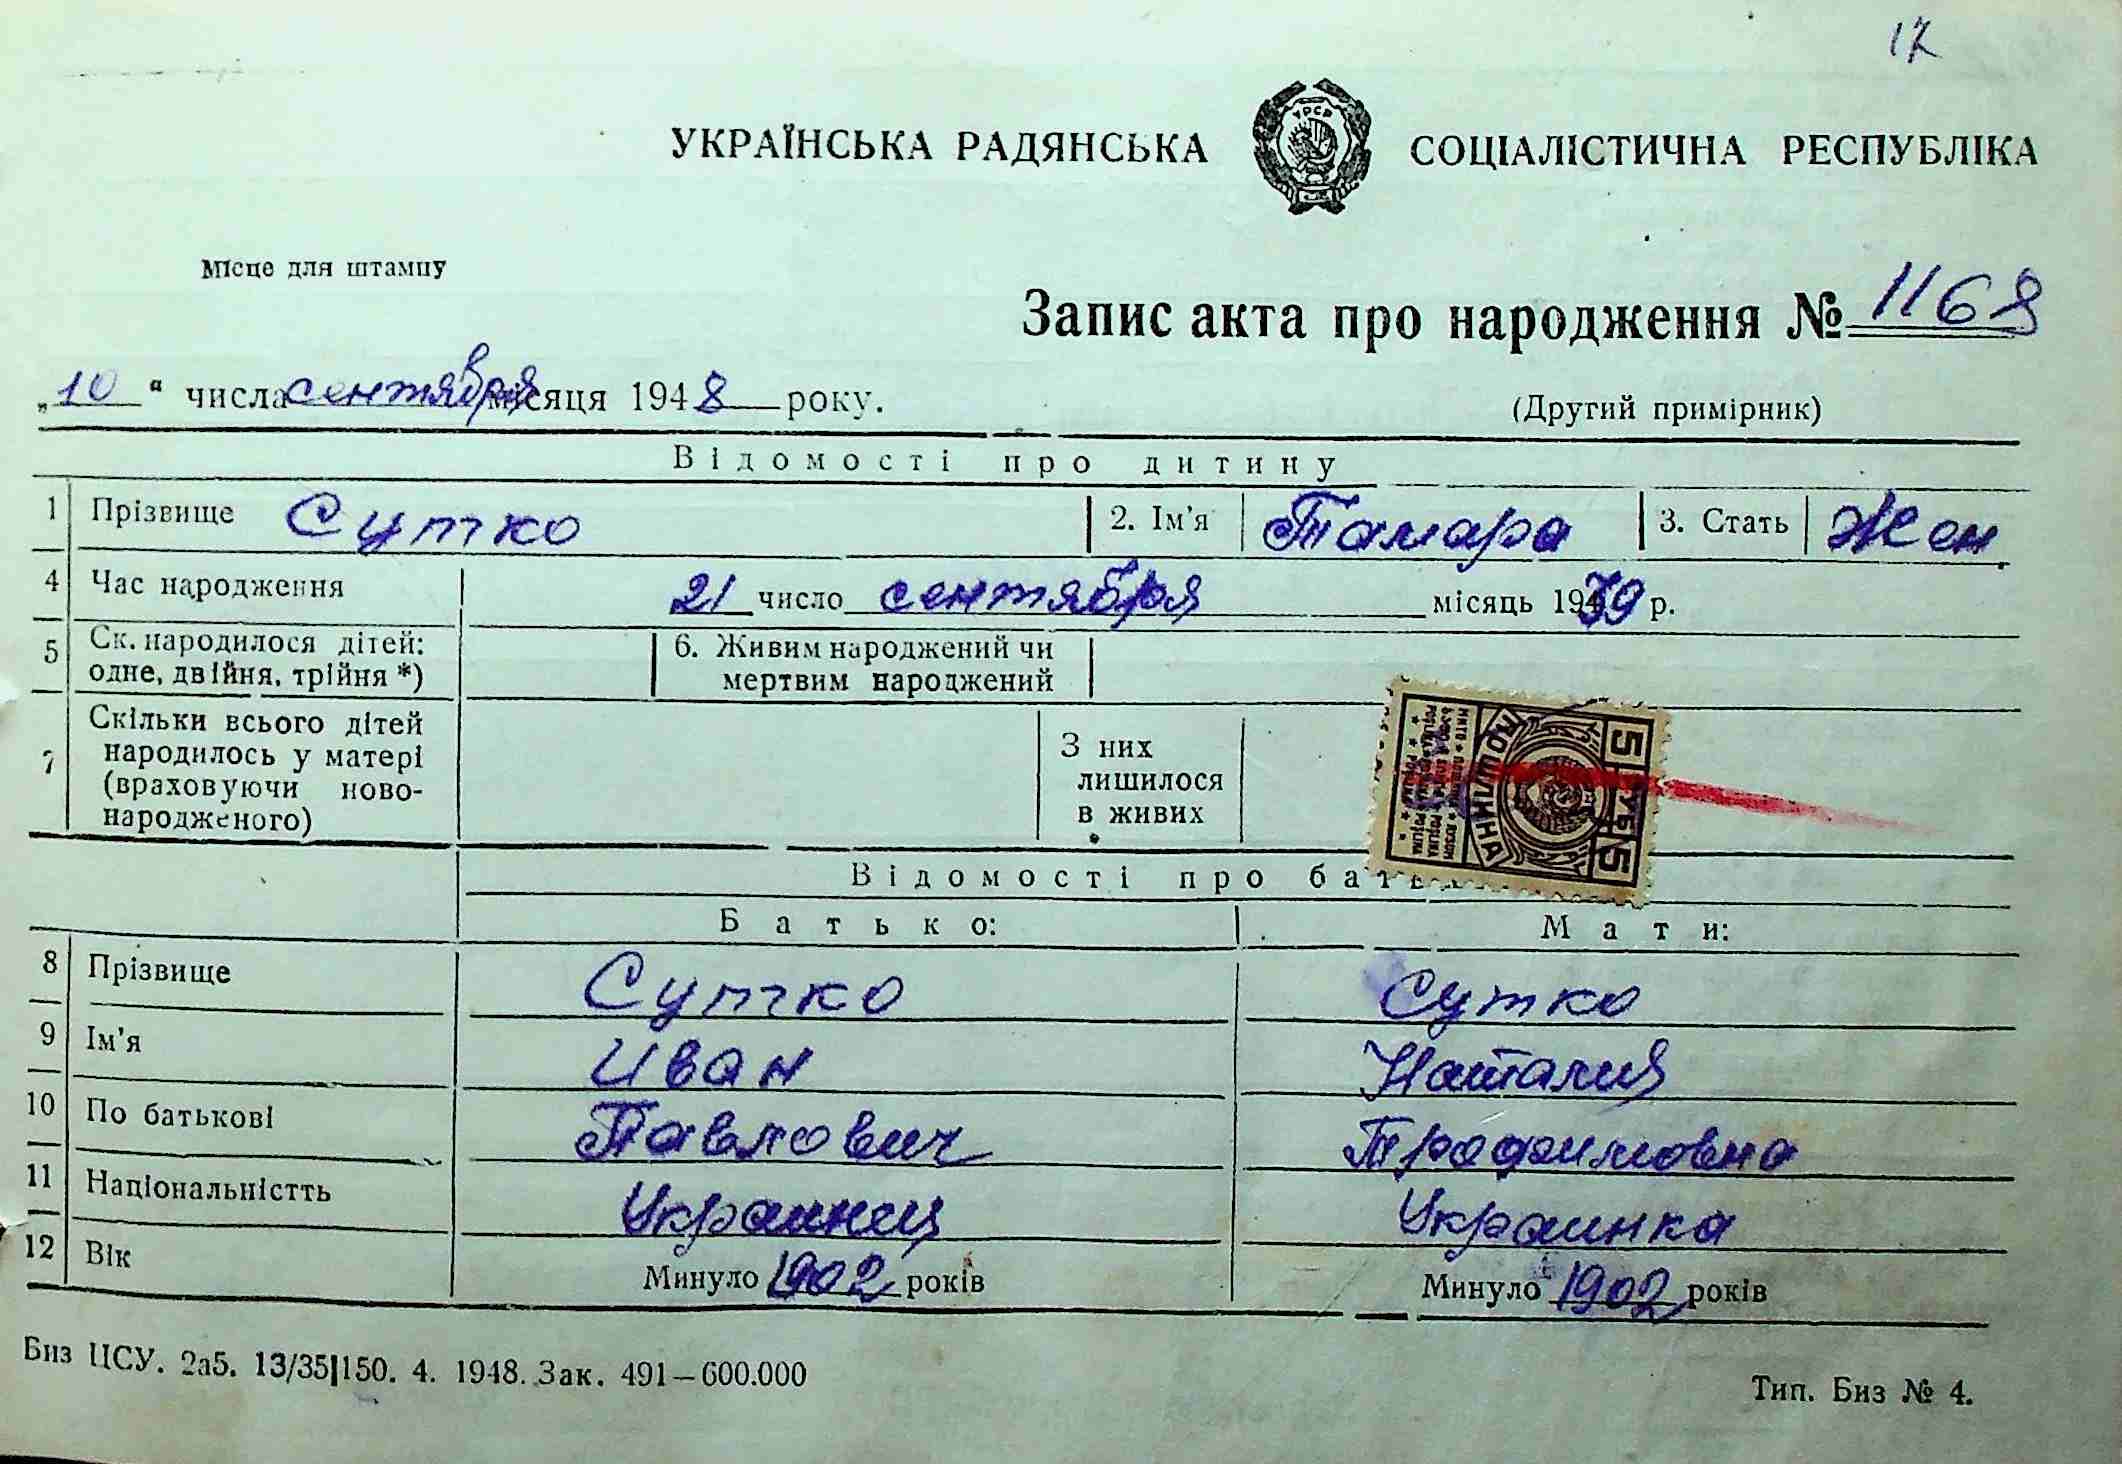 17
УКРАЇНСЬКА РАДЯНСЬКА СОЦІАЛІСТИЧНА РЕСПУБЛІКА
УРСР
Місце для штампу
Запис акта про народження № 1168
„10“ числа сентября місяця 1948 року.
(Другий примірник)
Відомості про дитину
1 Прізвище Сутко 2. Ім'я Тамара 3. Стать Жен
4 Час народження 21 число сентября місяць 1939 р.
5 Ск. народилося дітей: одне, двійня, трійня *) 6. Живим народжений чи мертвим народжений
7 Скільки всього дітей народилось у матері (враховуючи ново-народженого) З них лишилося в живих
5 РУБ 5
МИТНА
Відомості про
Батько: Мати:
8 Прізвище Сутко Сутко
9 Ім'я Иван Наталия
10 По батькові Павлович Трофимовна
11 Національністть Украинец Украинка
12 Вік Минуло 1902 років Минуло 1902 років
Биз ЦСУ. 2а5. 13/35|150. 4. 1948. Зак. 491—600.000
Тип. Биз № 4.